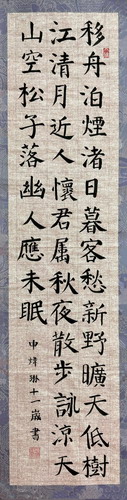 移舟泊煙渚日暮客愁新野曠天低樹
江清月近人懷君属秋夜散步詠涼天
山空松子落幽人應未眠
申煒琳十一歲書